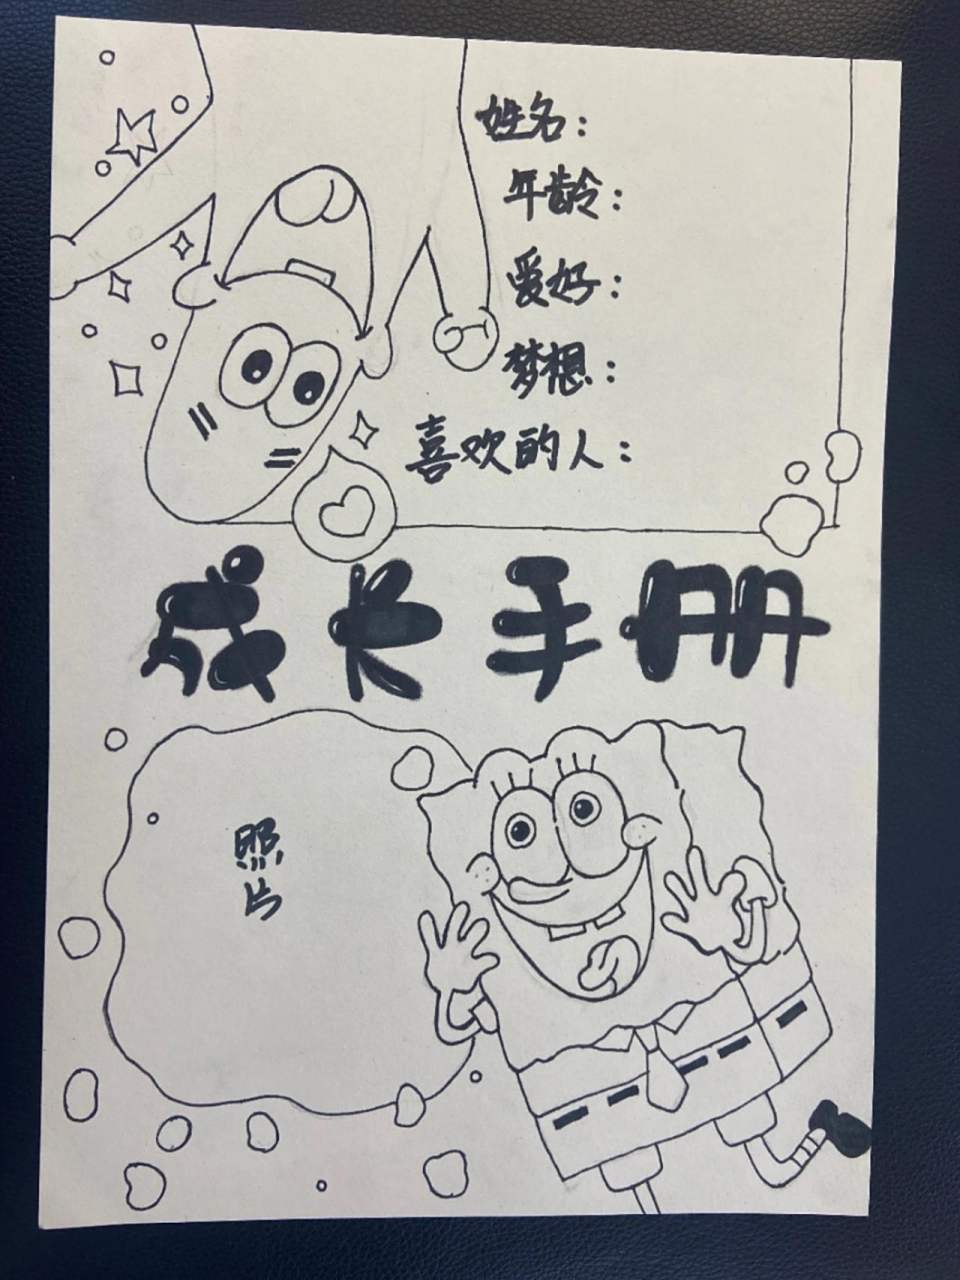 姓名：
年龄：
爱好：
梦想：
喜欢的人：
成长手册
照
片